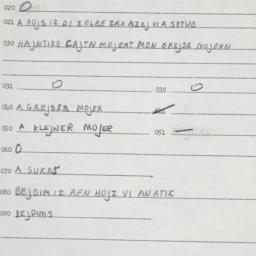 020 O
021 A HOJS IZ DI ZELBE ZAX AZEJ VI A STUB
030 HAJNTIKE CAJTN MOJERT MEN GREJSE MOJERN
031 O 032 O
040 A GREJSER MOJER
050 A KLEJNER MOJER 051 —
060 O
070 A SUKES
080 BEJDIM IZ AFN HOJZ VI AN ATIK
090 BEJDIMS